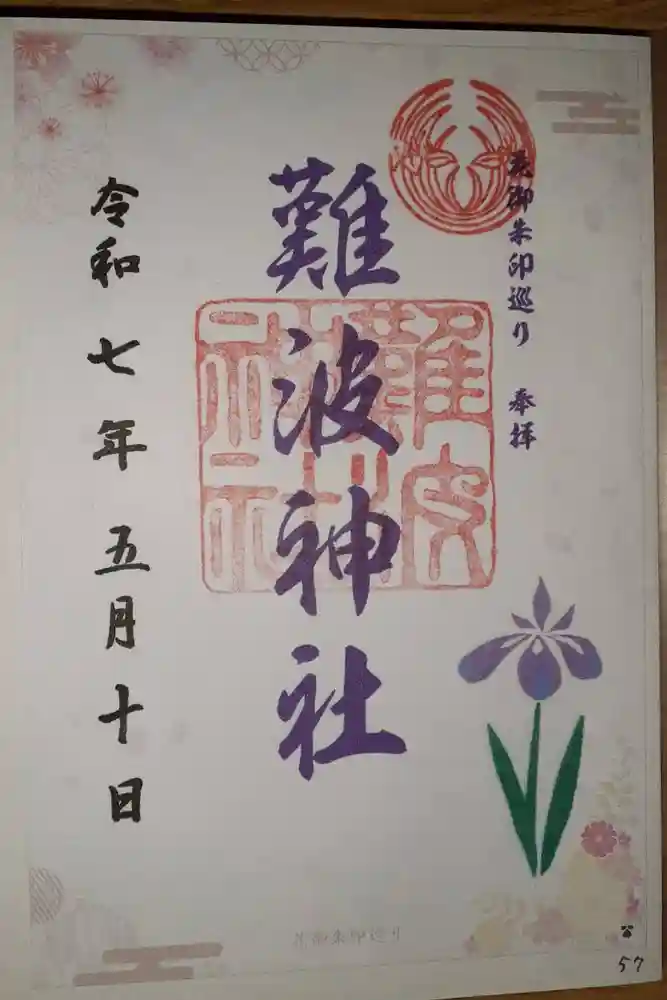 花御朱印巡り 奉拝
難波神社
令和七年 五月十日
花御朱印巡り
57